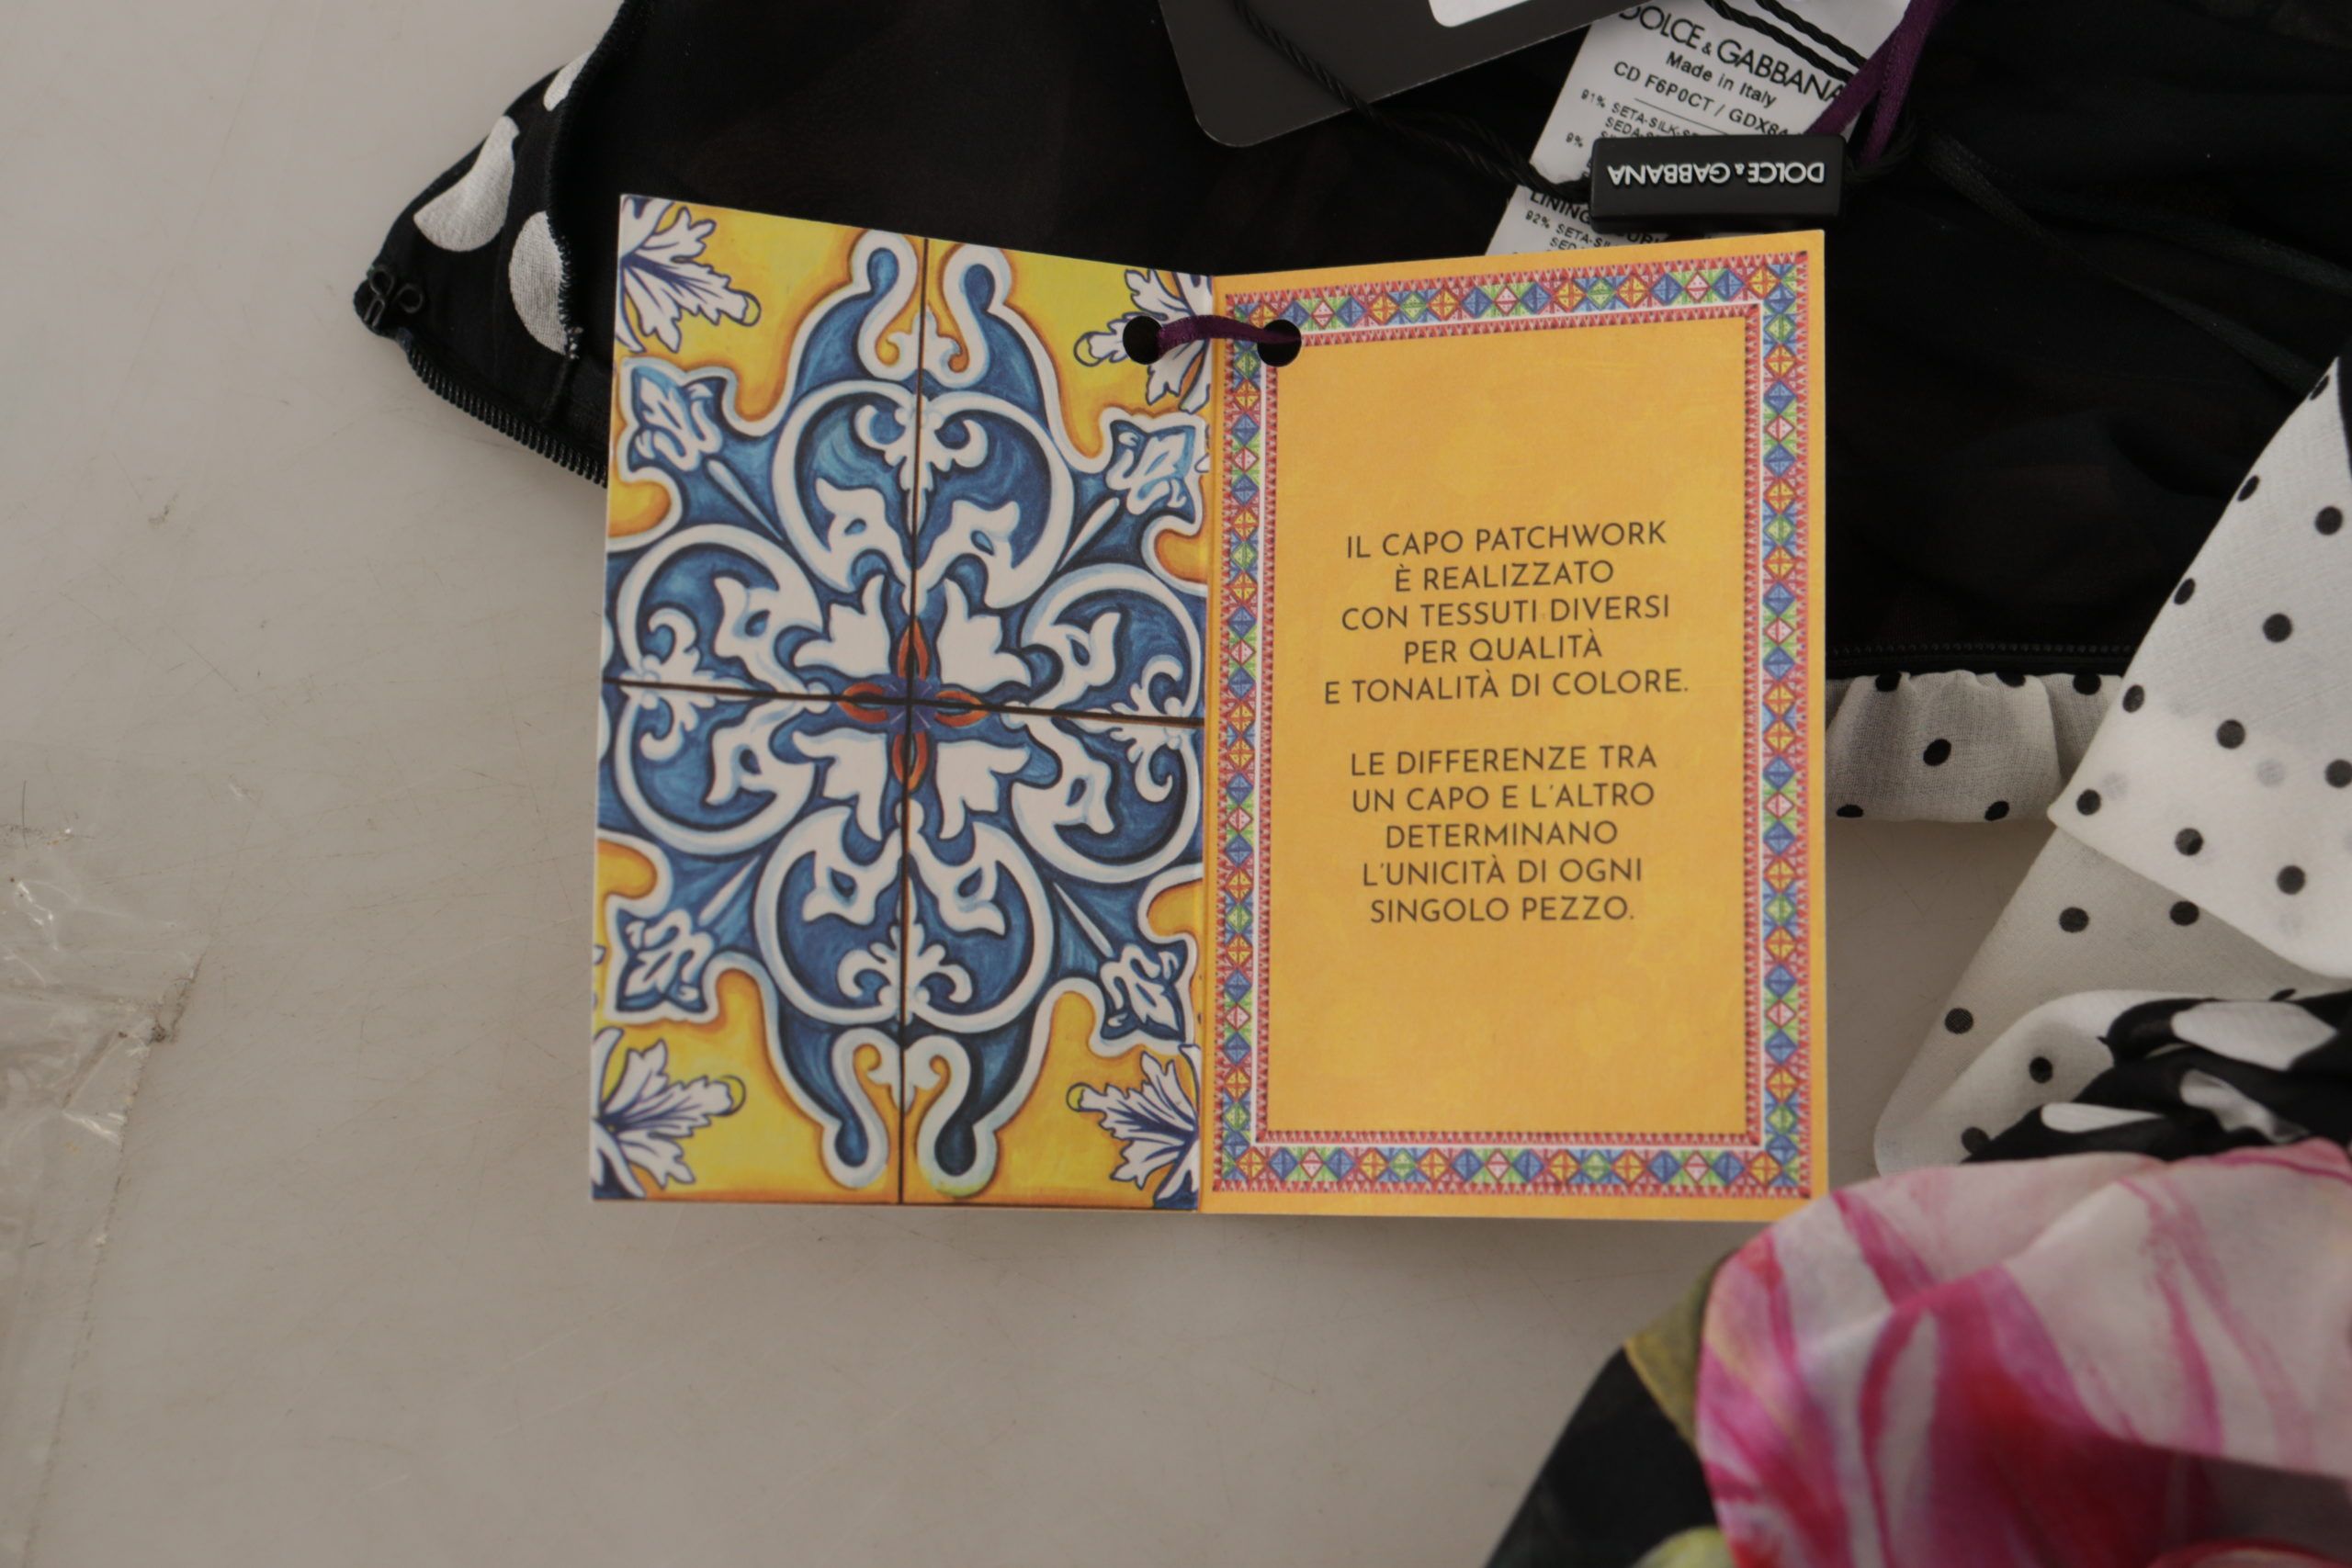 DOLCE & GABBANA
Made in Italy
CD F6P0CT /
91% SETA-SILK-
9%
DOLCE & GABBANA
LINING
92%
IL CAPO PATCHWORK
È REALIZZATO
CON TESSUTI DIVERSI
PER QUALITÀ
E TONALITÀ DI COLORE.
LE DIFFERENZE TRA
UN CAPO E L'ALTRO
DETERMINANO
L'UNICITÀ DI OGNI
SINGOLO PEZZO.